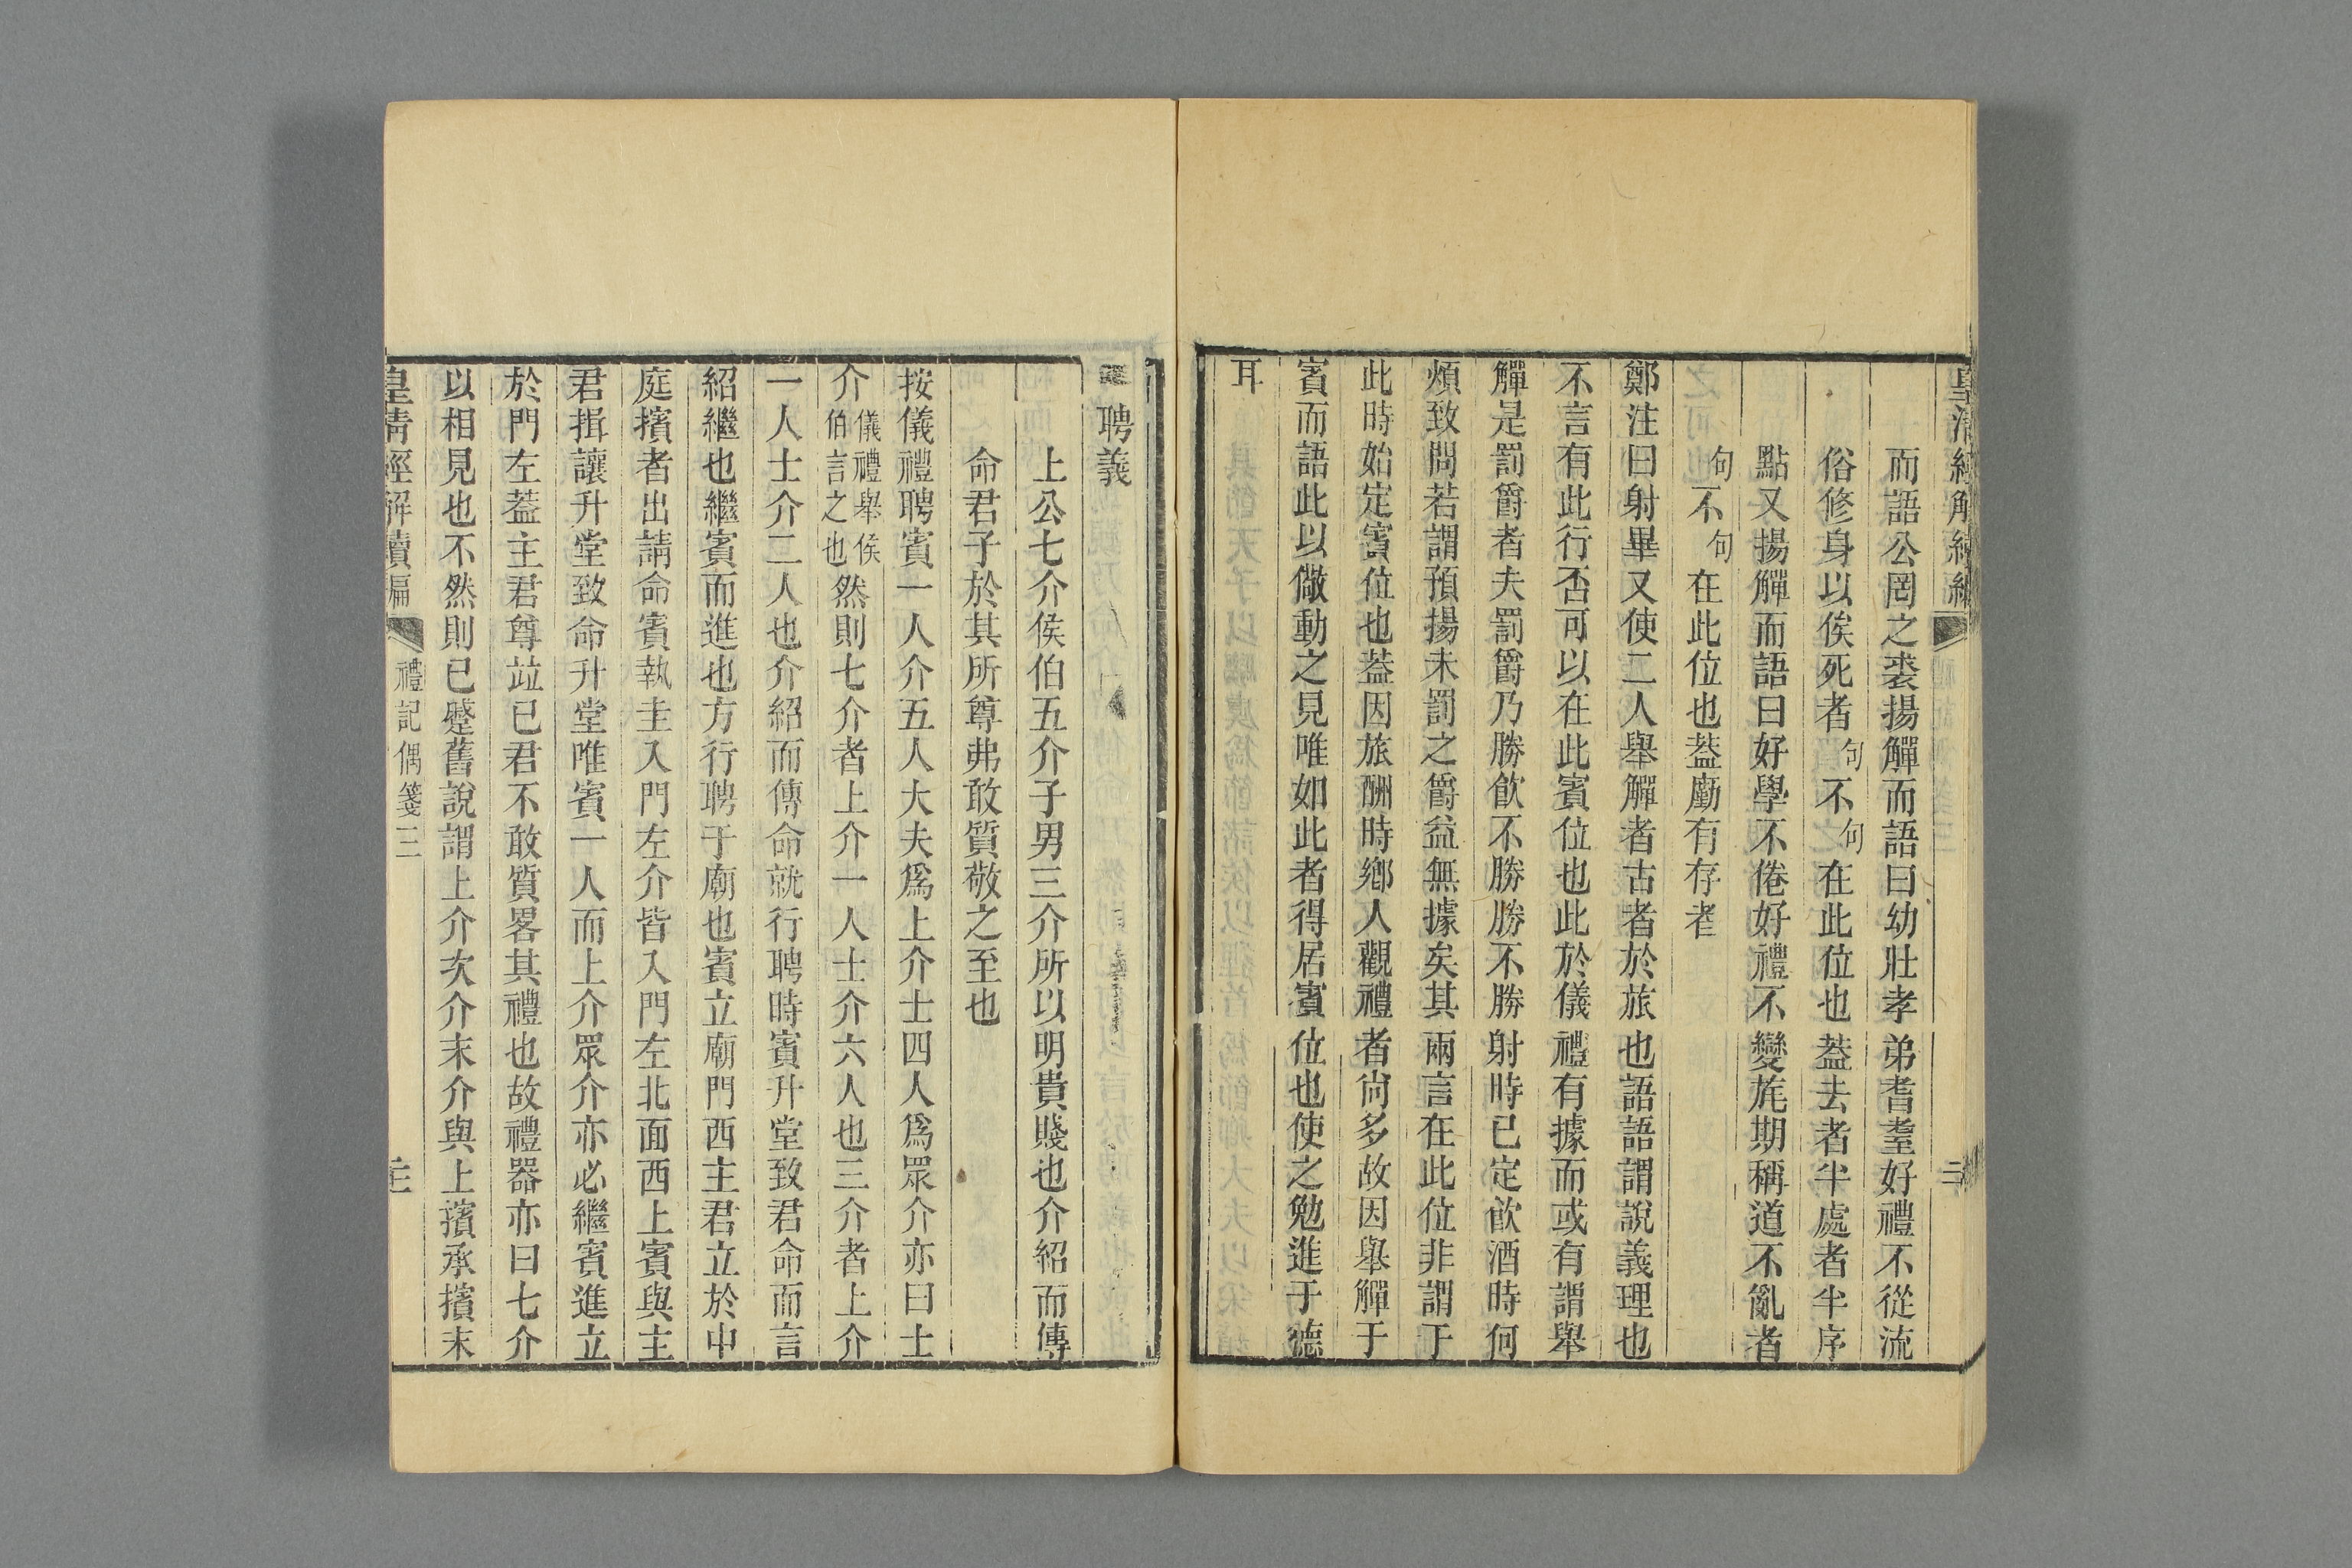 皇清經解續編
二
而語公罔之裘揚觶而語曰幼壯孝弟耆耋好禮不從流
俗修身以俟死者句不句在此位也蓋去者半處者半序
點又揚觶而語曰好學不倦好禮不變旄期稱道不亂者
句不句在此位也蓋勵有存者
鄭注曰射畢又使二人舉觶者古者於旅也語語謂說義理也
不言有此行否可以在此賓位也此於儀禮有據而或有謂舉
觶是罰爵者夫罰爵乃勝飲不勝勝不勝射時已定飲酒時何
煩致問若謂預揚未罰之爵益無據矣其兩言在此位非謂于
此時始定賓位也蓋因旅酬時鄉人觀禮者尙多故因舉觶于
賓而語此以儆動之見唯如此者得居賓位也使之勉進于德
耳
聘義
上公七介侯伯五介子男三介所以明貴賤也介紹而傳
命君子於其所尊弗敢質敬之至也
按儀禮聘賓一人介五人大夫爲上介士四人爲眾介亦曰士
介儀禮舉侯伯言之也然則七介者上介一人士介六人也三介者上介
一人士介二人也介紹而傳命就行聘時賓升堂致君命而言
紹繼也繼賓而進也方行聘于廟也賓立廟門西主君立於中
庭擯者出請命賓執圭入門左介皆入門左北面西上賓與主
君揖讓升堂致命升堂唯賓一人而上介眾介亦必繼賓進立
於門左蓋主君尊竝已君不敢質畧其禮也故禮器亦曰七介
以相見也不然則已蹙舊說謂上介次介末介與上擯承擯末
皇清經解續編
禮記偶箋三